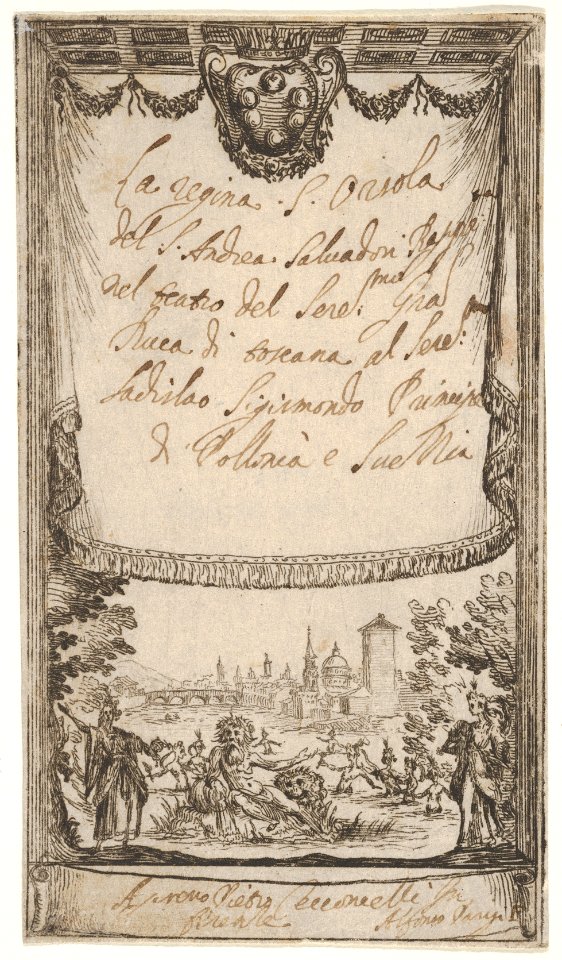 La regina. S. Orsola
del S. Andrea Salvadori Rappre ta
nel teatro del Sere. mo Gra
Duca di toscana al Sere. mo
Ladislao Sigismondo Principe
di Pollonia e Suettia
Apresso Pietro Cecconcelli
firenze Alfonso Parigi F